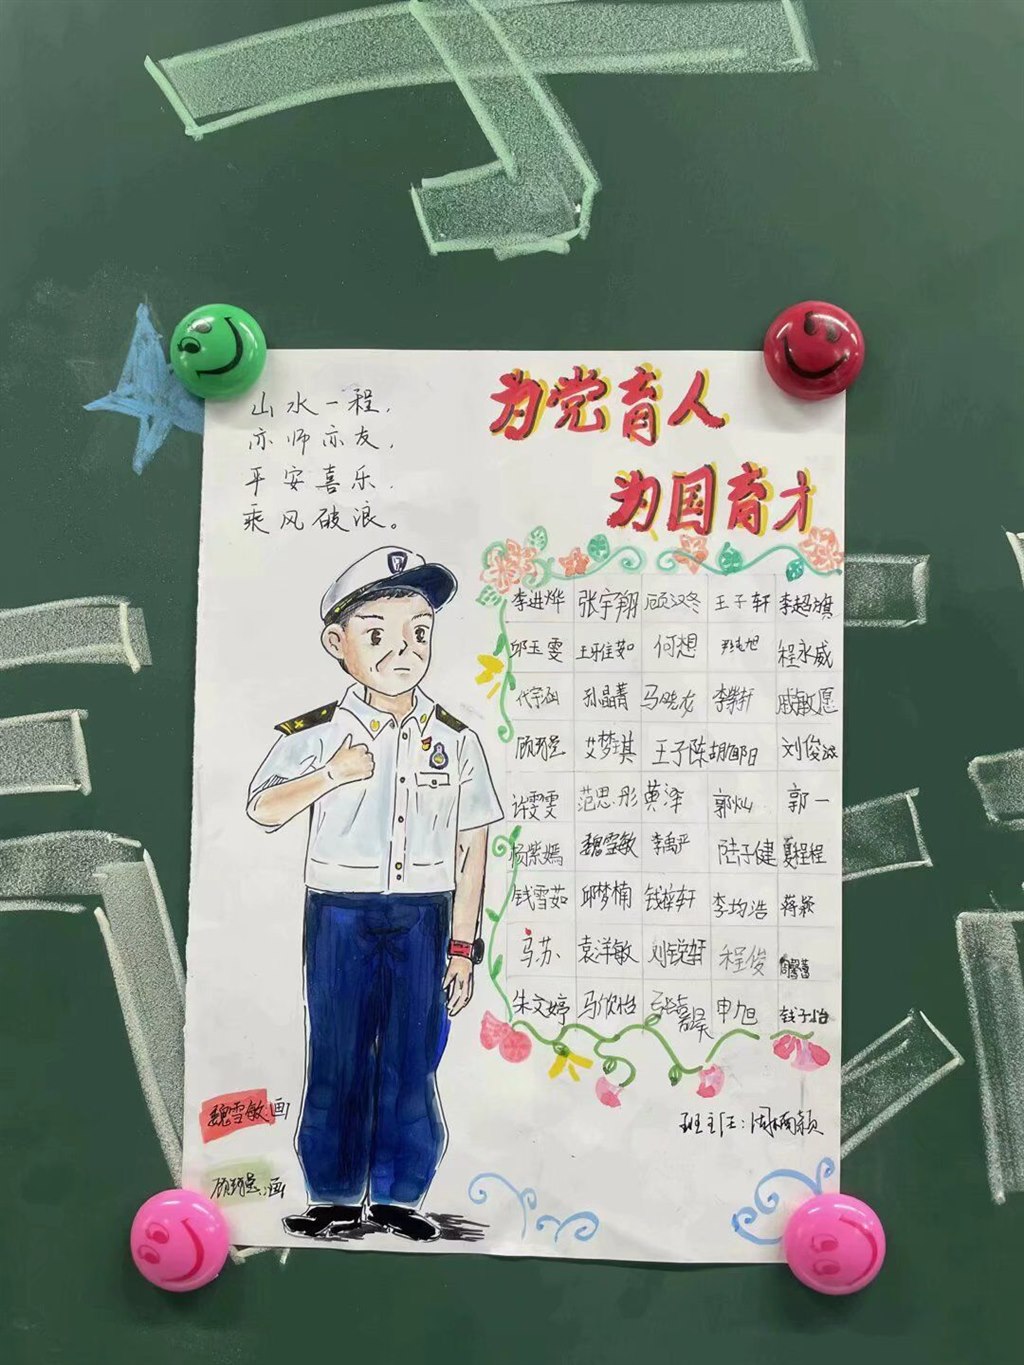 山水一程，
亦师亦友，
平安喜乐，
乘风破浪。
为党育人
为国育才
李进烨 张宇翔 顾汉冬 王子轩 李超旗
邱玉雯 王雅茹 何想 程永威
代宇涵 孙晶菁 马晓龙 李紫轩 戚敏愿
艾梦琪 王子陈 胡向阳 刘俊
许雯雯 范思彤 黄泽 郭灿 郭一
杨紫嫣 魏雪敏 李禹严 陆子健 夏程程
钱雪茹 邱梦楠 钱梓轩 李均浩 蒋颖
马苏 袁洋敏 刘锐轩 程俊
朱文婷 马欣怡 申旭 钱子怡
班主任：周楠颖
魏雪敏画
画